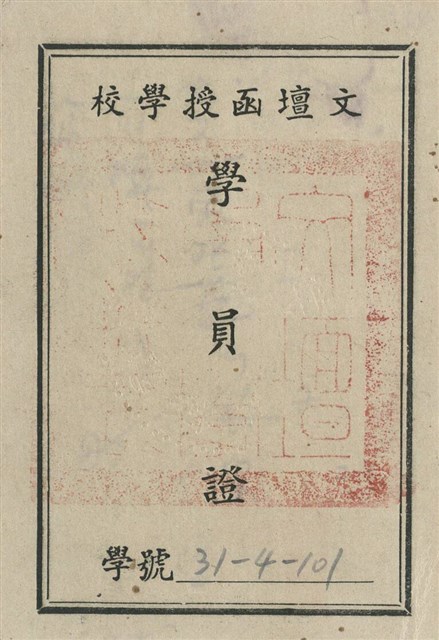 文壇函授學校
學員證
學號 31-4-101